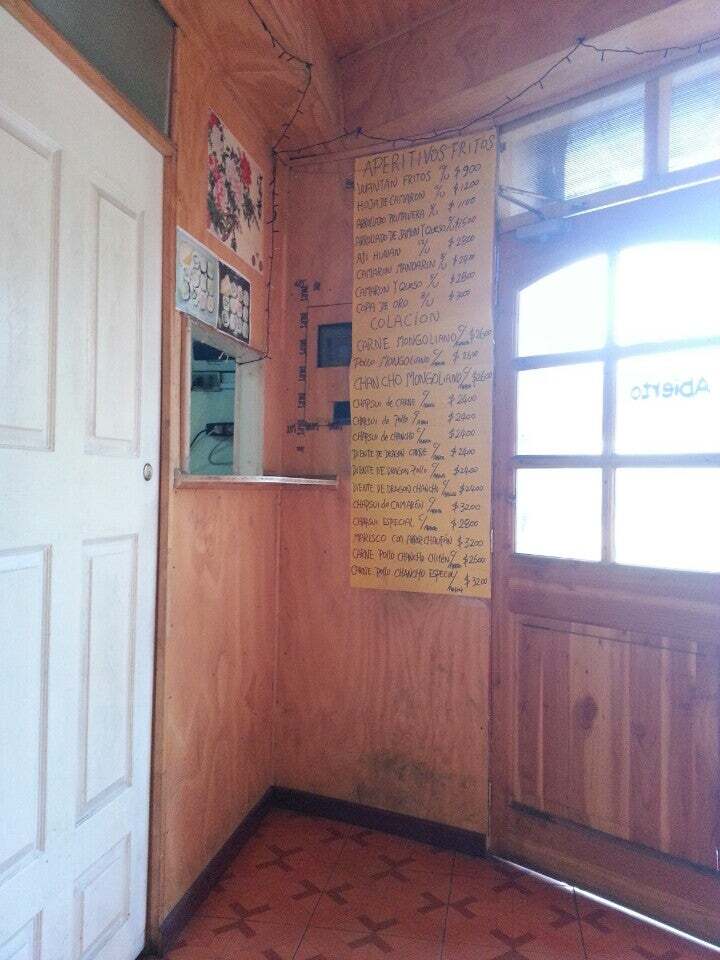 APERITIVOS FRITOS
WANTÁN FRITOS C/U $900
HOJA DE CAMARON C/U $1200
ARROLLADO PRIMAVERA C/U $1100
ARROLLADO DE JAMON Y QUESO C/U $1500
AJI HUNAN C/U $2800
CAMARON MANDARIN C/U
CAMARON Y QUESO C/U $2800
COPA DE ORO C/U
COLACION
CARNE MONGOLIANO C/ $2600
POLLO MONGOLIANO C/ $2600
CHANCHO MONGOLIANO C/ $2600
CHAPSUI de CARNE C/ $2400
CHAPSUI de Pollo C/ $2400
CHAPSUI de CHANCHO C/ $2400
DIENTE DE DRAGON CARNE C/ $2400
DIENTE DE DRAGON POLLO C/ $2400
DIENTE DE DRAGON CHANCHO C/ $2400
CHAPSUI de CAMARÓN C/ $3200
CHAPSUI ESPECIAL C/ $2800
MARISCO con ARROZ CHAUFÁN $3200
CARNE POLLO CHANCHO C/ $2600
CARNE POLLO CHANCHO ESPECIAL C/ $3200
Abierto